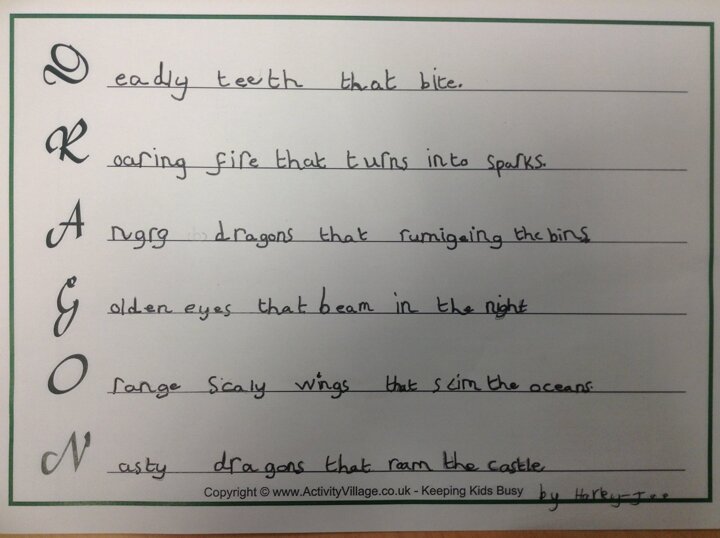 Deadly teeth that bite.
Roaring fire that turns into sparks.
Angrg dragons that rumigeing the bins
Golden eyes that beam in the night
Orange scaly wings that skim the oceans.
Nasty dragons that roam the castle.
Copyright © www.ActivityVillage.co.uk - Keeping Kids Busy
by Harley-Joe